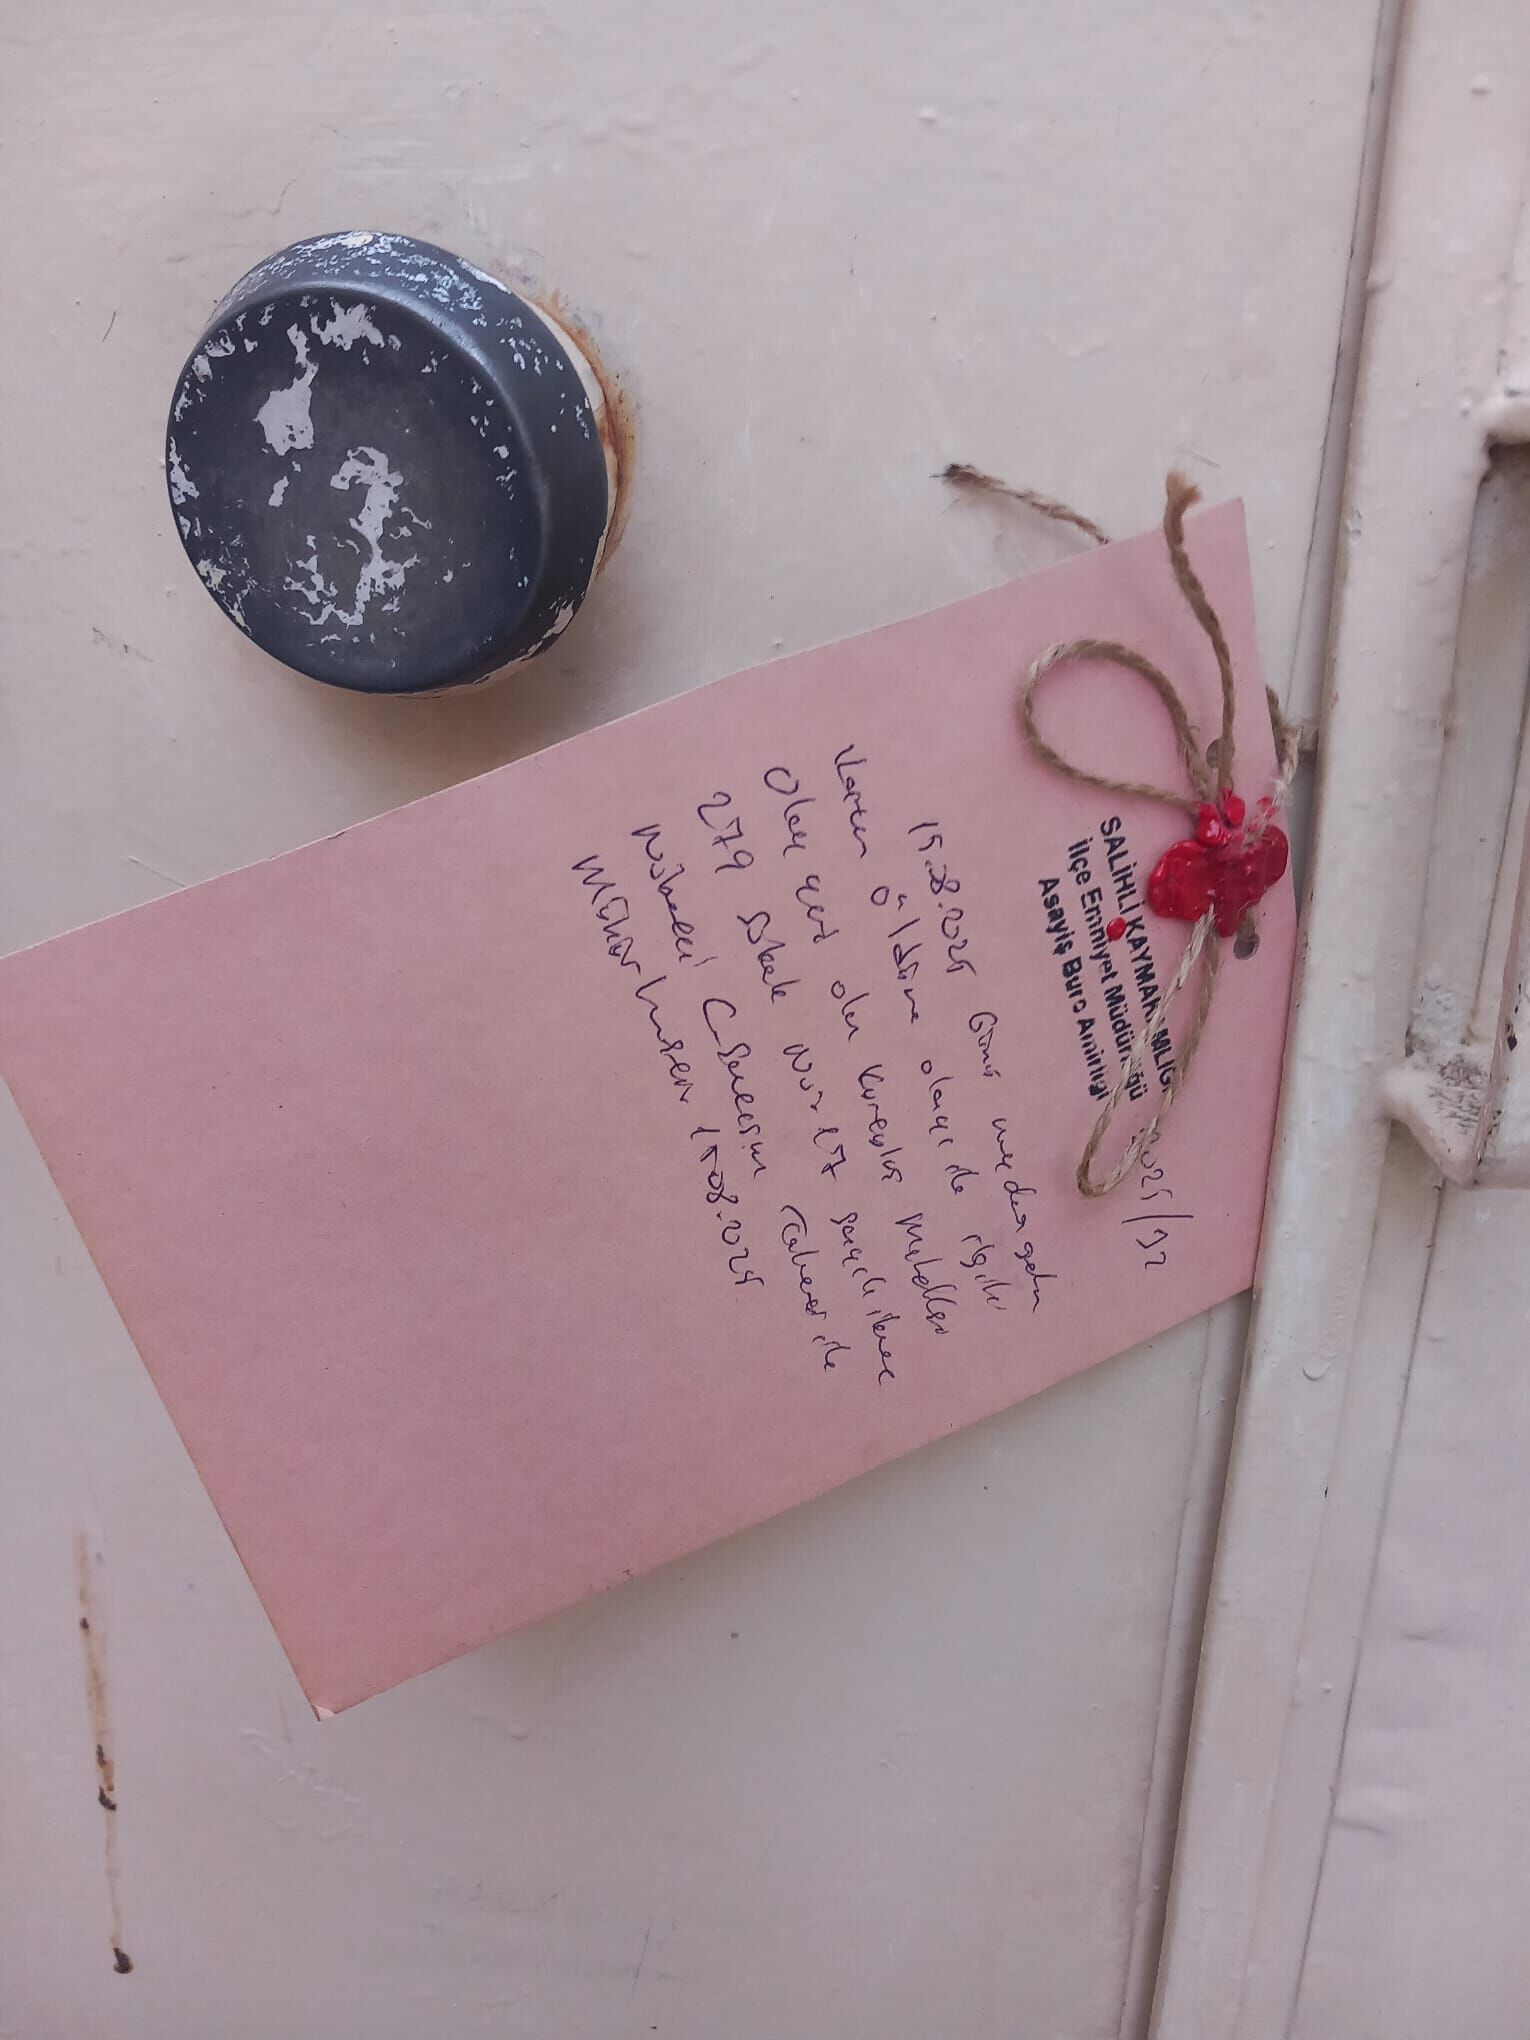 SALİHLİ KAYMAKAMLIĞI
İlçe Emniyet Müdürlüğü
Asayiş Büro Amirliği
2025/32
15.08.2025 Günü meydana gelen
Kasten öldürme olayı ile ilgili
Olay yeri olan Kurtuluş Mahallesi
279 Sokak No: 17 sayılı
Nöbetçi C. Savcısının Talimatı ile
Mühürlenmiştir 15.08.2025